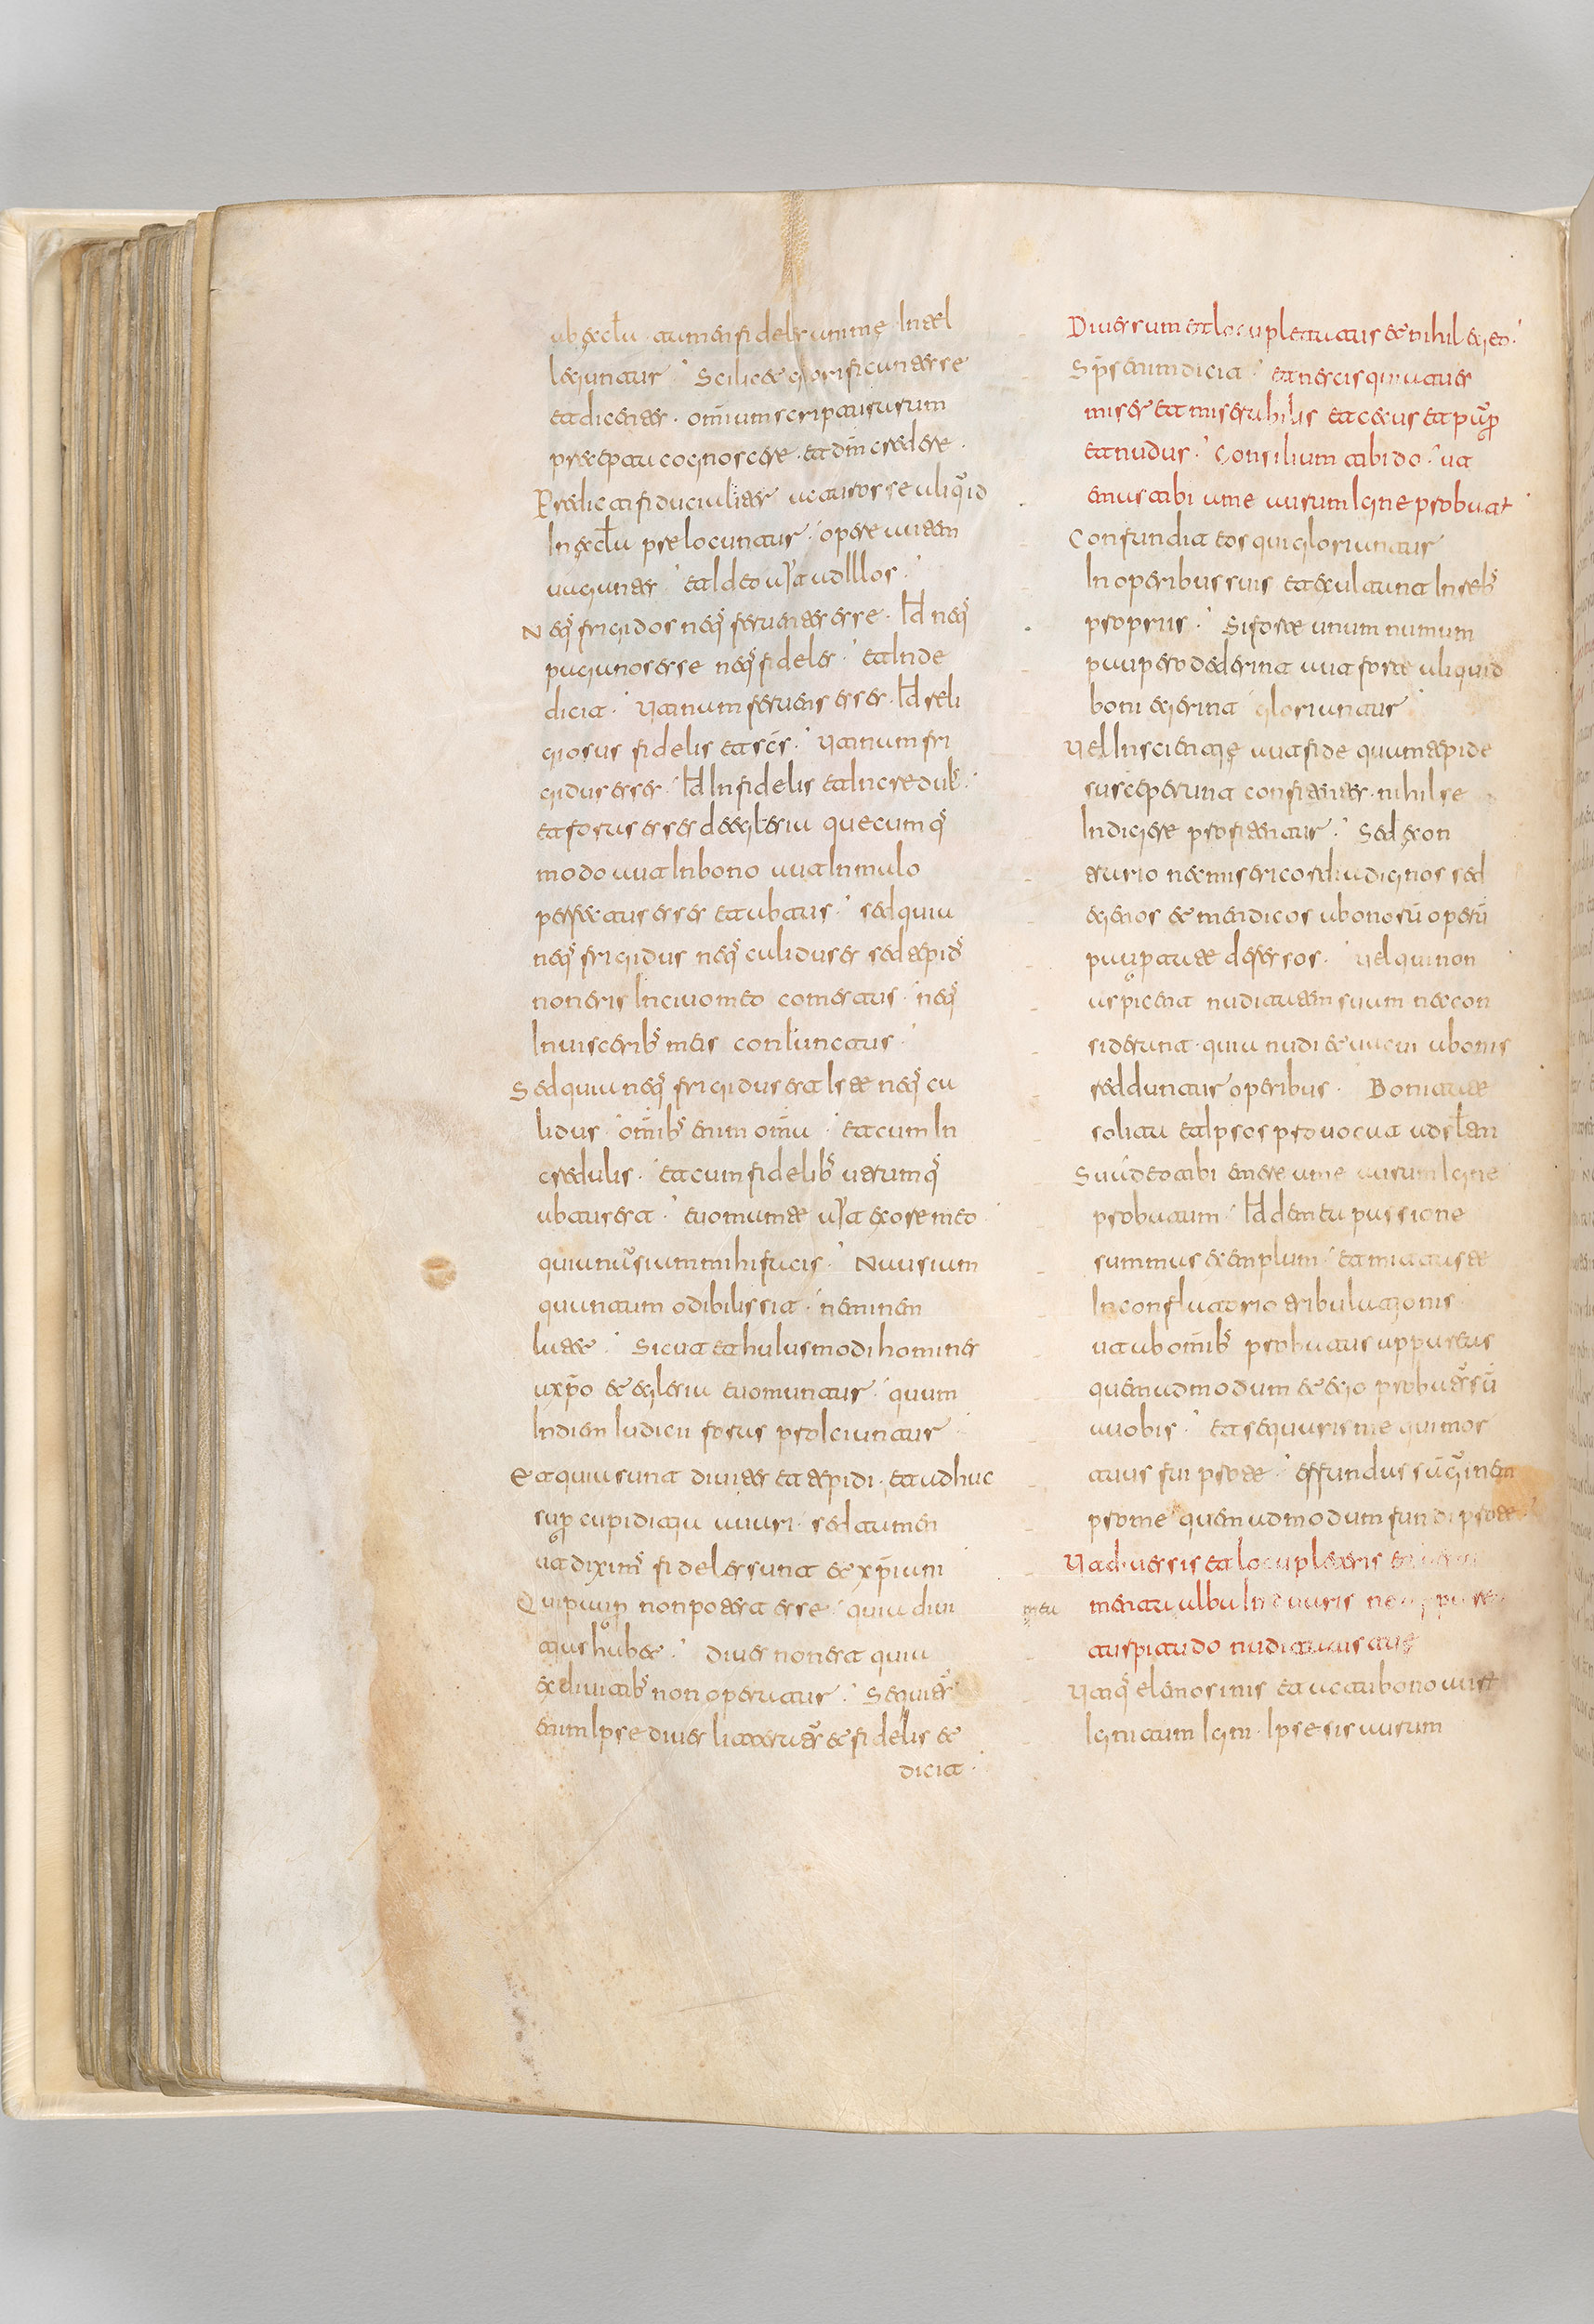 ab ęcl̄a · tamen fideles animę Intel
legantur · Scilicet glorificantes se
et dicentes · om̄ium scripturarum
precepta cognoscere · et dm̄ credere ·
Predicant fiducialiter ut autos se aliquid
In ęcl̄a prelocuntur · opere autem
uagantes · et Ideo ait ad Illos ·
Neq frigidos neq feruentes esse · Id neq
paganos esse neq fideles · et Inde
dicit · Utinam feruens esses · Id reli
giosus fidelis et scs · Utinam fri
gidus esses · Id Infidelis et Incredul ·
et foras esses de egl̄esia quecumq
modo aut In bono aut In malo
perfectus esses et abtus · sed quia
neq frigidus neq calidus es sed tepid
non eris In ciuo meo comestus · neq
In uiscerib meis conIunctus ·
Sed quia neq frigidus erat Iste neq ca
lidus · om̄ib enim om̄ia · et cum In
credulis · et cum fidelib uterumq
abtus erat · euomam te ait ex ore meo
quia nausiam mihi facis · Nausiam
quantum odibilis sit · neminem
latet · Sicut et huIusmodi homines
a xp̄o et egl̄esia euomuntur · quum
In diem Iudicii foras proIciuntur
Et quia sunt diuites et tepidi · et adhuc
sup cupiditati auari · sed tamen
ut dixim fideles sunt et xp̄iani
Qui paup non potest esse · quia diui
tias habet · Diues non est quia
ex diuitib non operatur · Sequitur
enim Ipse diues litteratur et fidelis et
dicit ·
Diues sum et locupletatus et nihil egeo ·
Sp̄s eum dicit · et nescis quia tu es
miser et miserabilis et cecus et paup
et nudus · Consilium tibi do · ut
emas tibi a me aurum Igne probat
Confundit eos qui gloriantur
In operibus suis et exultant In reb
propriis · Si forte unum numum
paupero dederint aut forte aliquid
boni egerint gloriantur
Uel In scientię aut fide quam tepide
susceperunt confitentes · nihil se
Indigere profitentur · Sed e con
trario nec misericordia dignos sed
egenos et mendicos a bonorū operū
paupertate desertos · Uel qui non
aspicent nuditatem suam nec con
siderant · quia nudi et uacui a bonis
reddantur operibus · Bonitate
solita et Ipsos prouocat ad sal̄tem
Suadeo tibi emere a me aurum Igne
probatum · Id dem ea passione
sumas exemplum · et mittaris te
In conflatorio tribulationis
ut ab om̄ib probatus appareas
quemadmodum et ego probatus sū
a uobis · et sequaris me qui mor
tuus fui pro te · effundas sanguinem
pro me quemadmodum fundi pro te
Ut diues sis et locupletes
menta alba Induaris ne appareat
turpitudo nuditatis tuę
Utiq elemosinis et ut tu bono
Ignitum Igni · Ipse sis aurum